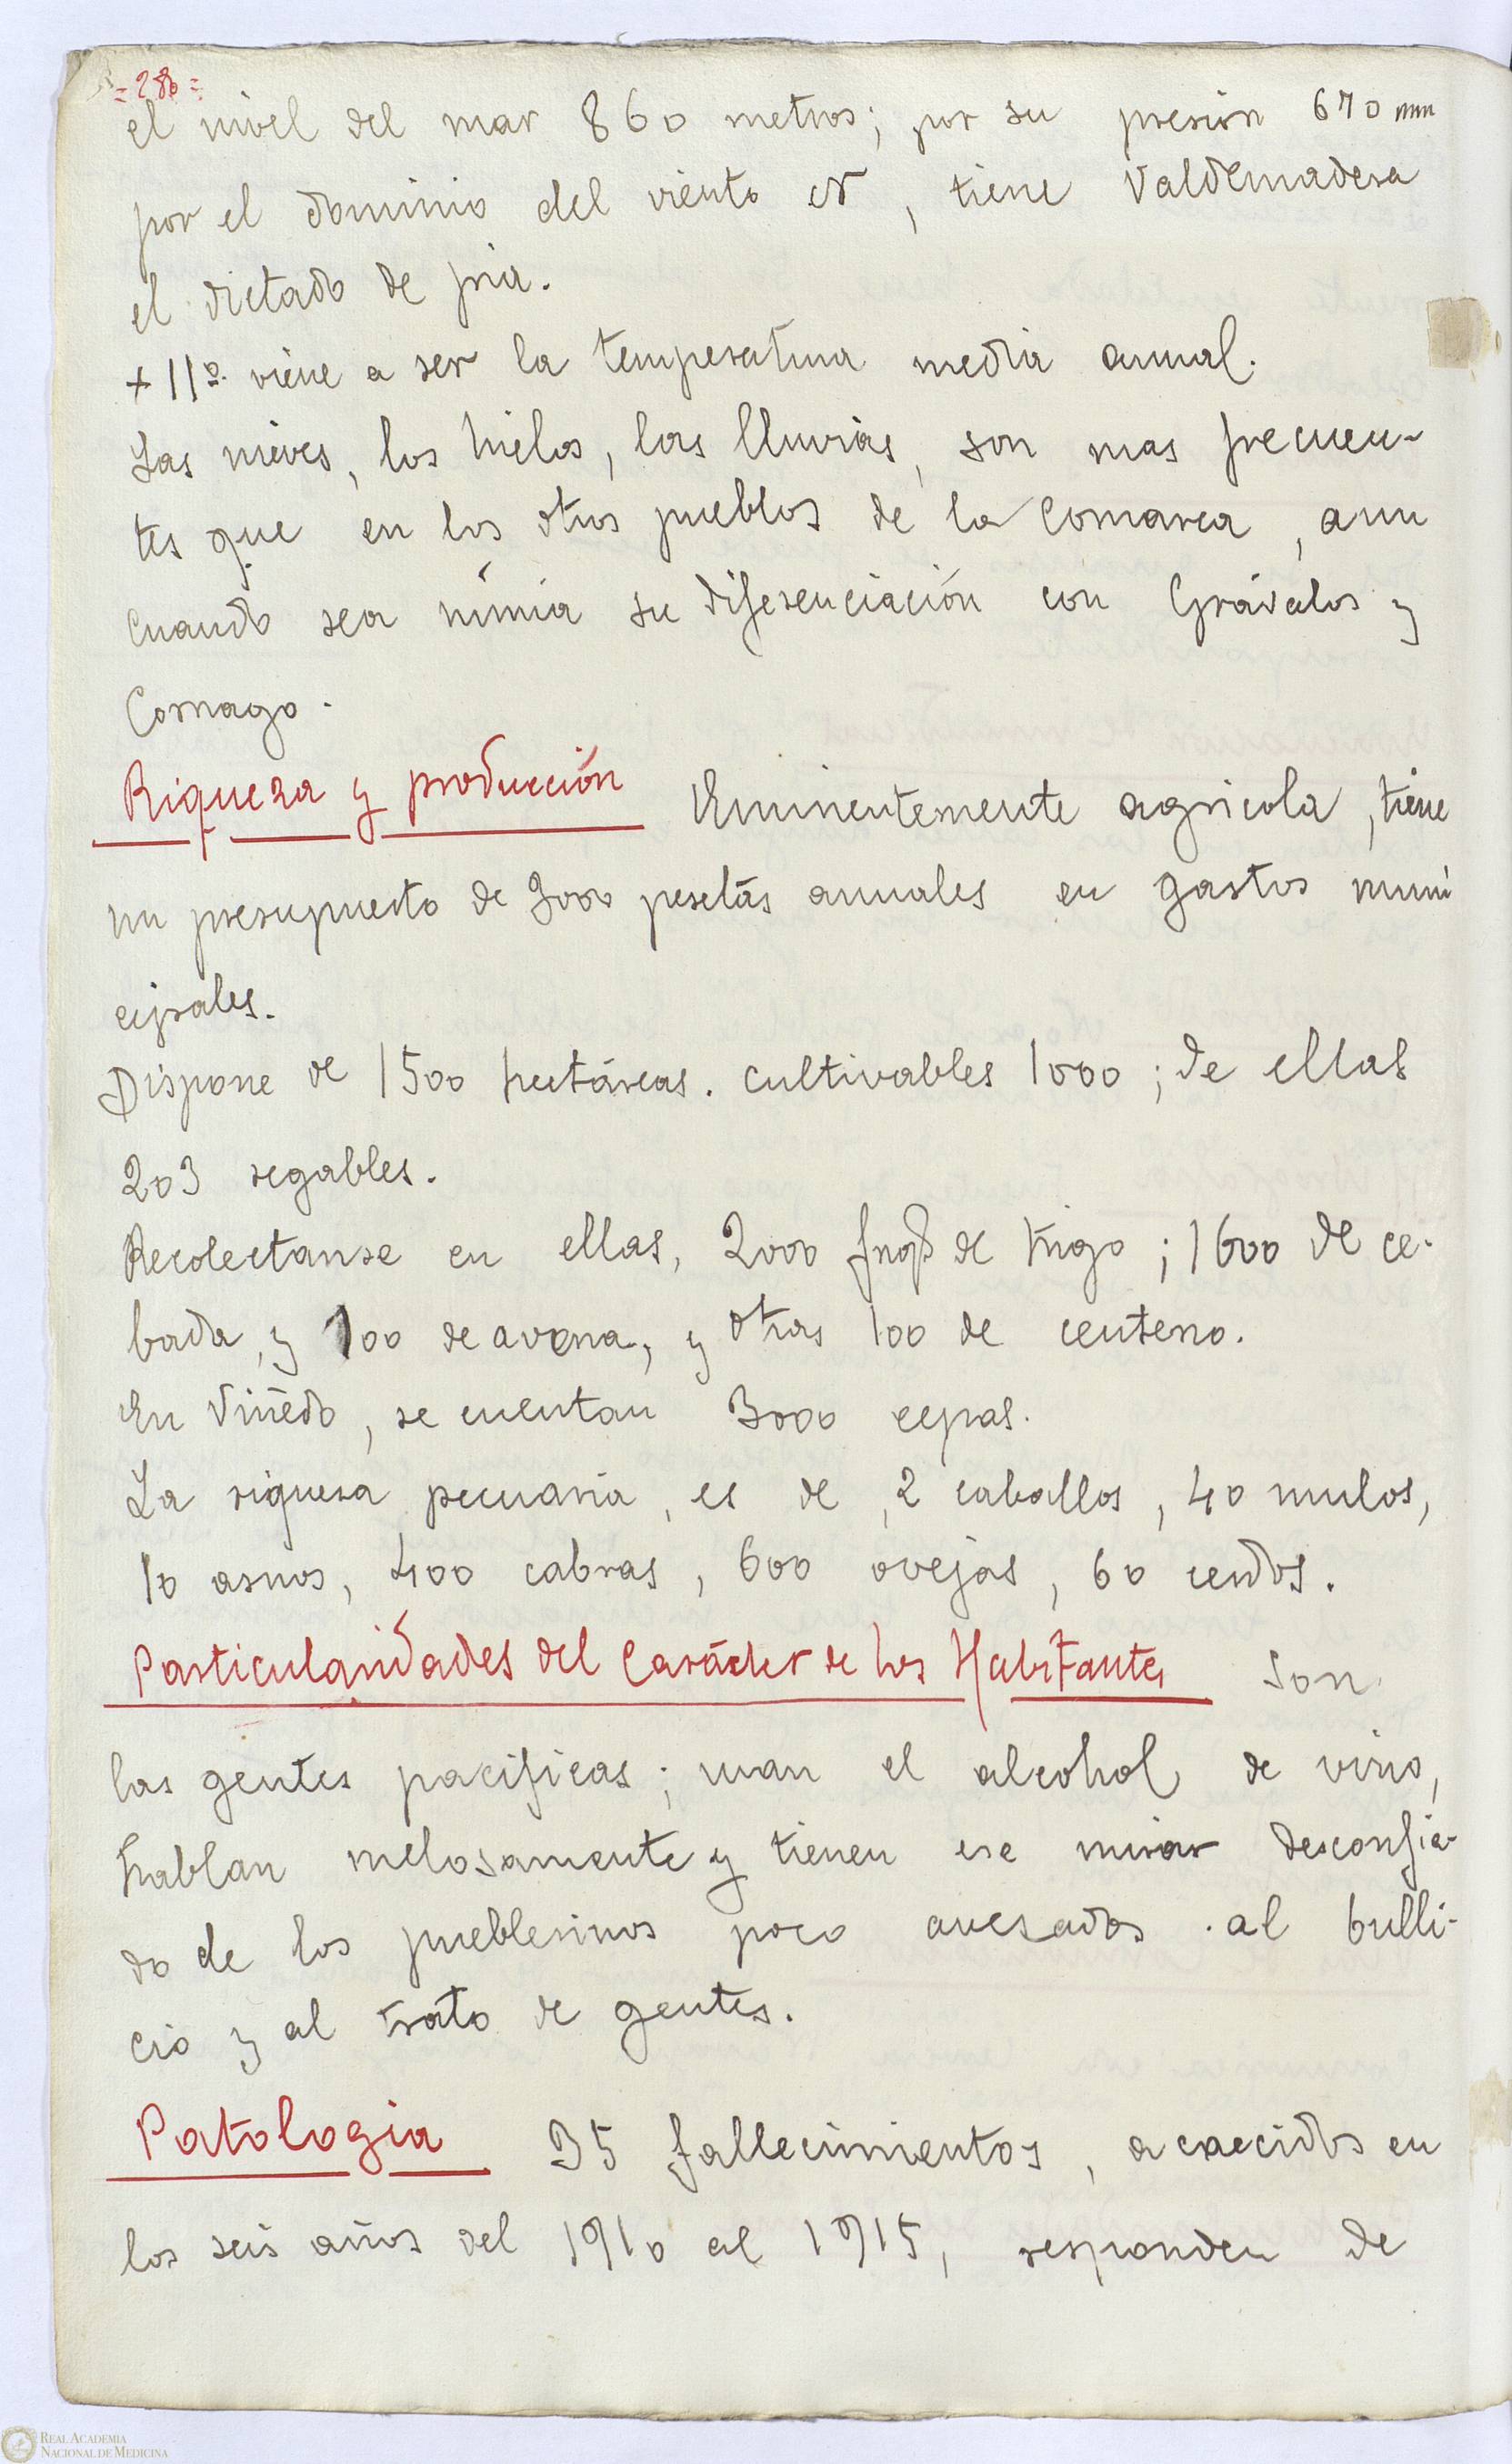 = 286 =
el nivel del mar 860 metros; por su presión 670 mm
por el dominio del viento N, tiene Valdemadera
el dictado de fria.
+ 11º viene a ser la temperatura media anual.
Las nieves, los hielos, las lluvias, son mas frecuen-
tes que en los otros pueblos de la Comarca, aun
cuando sea nímia su diferenciación con Grávalos y
Cornago.
Riqueza y producción Eminentemente agricola, tiene
un presupuesto de 3000 pesetas anuales en gastos muni
cipales.
Dispone de 1500 hectáreas. cultivables 1000; de ellas
203 regables.
Recolectanse en ellas, 2000 fngs de trigo; 1600 de ce-
bada, y 100 de avena, y otras 100 de centeno.
En Viñedo, se cuentan 3000 cepas.
La riqueza pecuaria, es de, 2 caballos, 40 mulos,
10 asnos, 400 cabras, 600 ovejas, 60 cerdos.
Particularidades del Carácter de los Habitantes Son
las gentes pacificas; usan el alcohol de vino,
hablan melosamente y tienen ese mirar desconfia-
do de los pueblerinos poco avesados al bulli-
cio y al trato de gentes.
Patologia 35 fallecimientos, acaecidos en
los seis años del 1910 al 1915, responden de
REAL ACADEMIA
NACIONAL DE MEDICINA